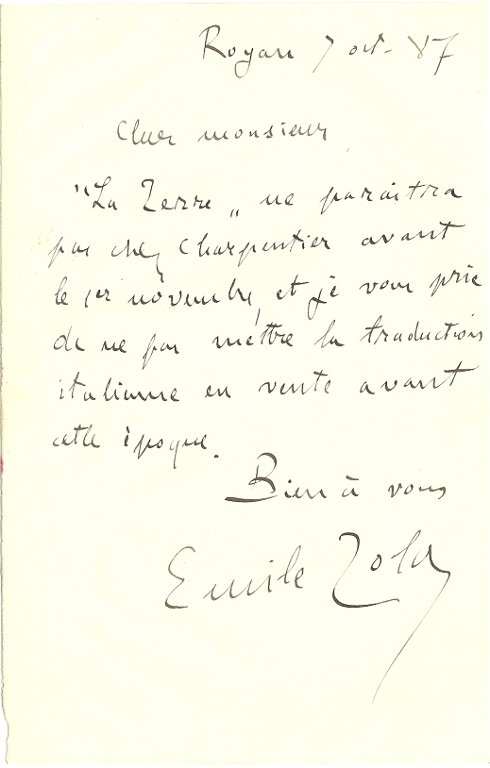 Royan 7 oct. 87
Cher monsieur
"La Terre„ ne paraîtra
pas chez Charpentier avant
le 1er novembre, et je vous prie
de ne pas mettre la traduction
italienne en vente avant
cette époque.
Bien à vous
Emile Zola